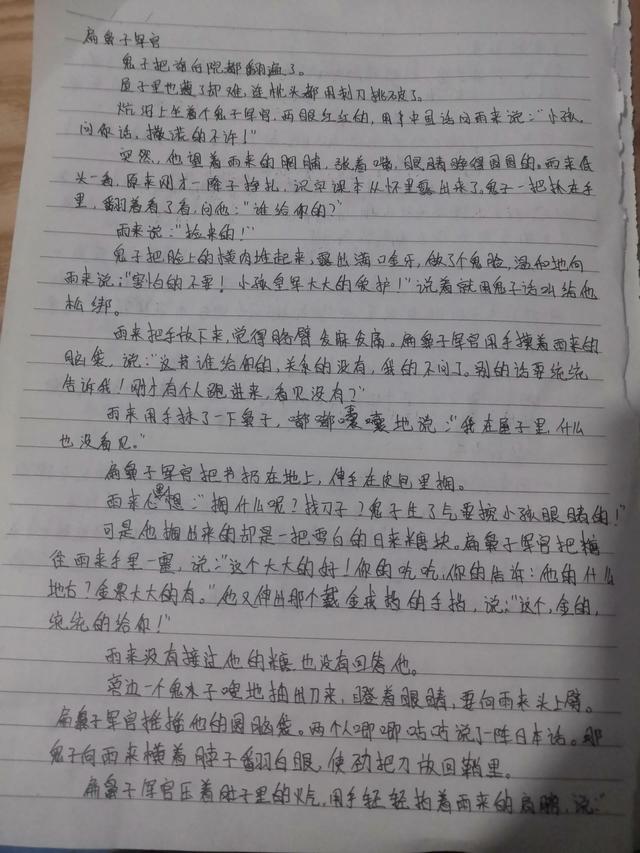 扁鼻子军官
鬼子把前后院都翻遍了。
屋子里也遭了劫难,连枕头都用刺刀挑破了。
炕沿上坐着个鬼子军官,两眼红红的,用半中国话问雨来说:“小孩,
问你话,撒谎的不许!”
突然,他望着雨来的胸脯,张着嘴,眼睛睁得圆圆的。雨来低
头一看,原来刚才一阵子挣扎,识字课本从怀里露出来了。鬼子一把抓在手
里,翻着看了看,问他:“谁给你的?”
雨来说:“捡来的!”
鬼子把脸上的横肉堆起来,露出满口金牙,做了个鬼脸,温和地向
雨来说:“害怕的不要!小孩皇军大大的爱护!”说着就用鬼子话叫给他
松绑。
雨来把手放下来,觉得胳臂发麻发痛。扁鼻子军官用手摸着雨来的
脑袋,说:“这书谁给你的,关系的没有,我的不问了。别的话要统统
告诉我!刚才有个人跑进来,看见没有?”
雨来用手抹了一下鼻子,嘟嘟囔囔地说:“我在屋子里,什么
也没看见。”
扁鼻子军官把书扔在地上,伸手在皮包里掏。
雨来心里想:“掏什么呢?找刀子?鬼子生了气要挖小孩眼睛的!”
可是他掏出来的却是一把雪白的日来糖块。扁鼻子军官把糖
往雨来手里一塞,说:“这个大大的好!你的吃吃,你的告诉:他的什么
地方?金票大大的有。”他又伸出那个戴金戒指的手指,说:“这个,金的,
统统的给你!”
雨来没有接过他的糖也没有回答他。
旁边一个鬼水子嗖地抽出刀来,瞪着眼睛,要向雨来头上劈。
扁鼻子军官摇摇他的圆脑袋。两个人唧唧咕咕说了一阵日本话。那
鬼子向雨来横着脖子翻白眼,使劲把刀放回鞘里。
扁鼻子军官压着肚子里的火气,用手轻轻拍着雨来的肩膀,说:“